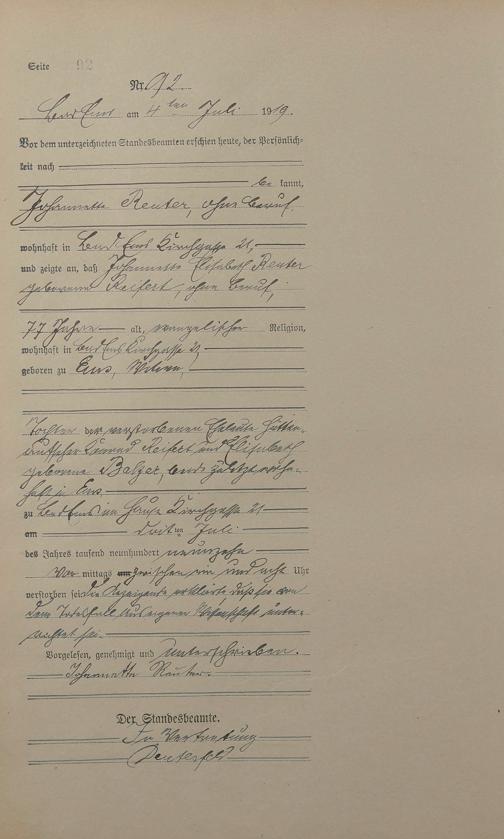 Seite 92
Nr. 92
Bad Ems am 4ten Juli 1919.
Vor dem unterzeichneten Standesbeamten erschien heute, der Persönlich-
keit nach
be kannt,
Johannette Reuter, ohne Beruf,
wohnhaft in Bad Ems Kirchgasse 21,
und zeigte an, daß Johannette Elisabeth Reuter
geborene Reifert, ohne Beruf,
77 Jahre alt, evangelischer Religion,
wohnhaft in Bad Ems Kirchgasse 21
geboren zu Ems, Witwe,
Tochter der verstorbenen Eheleute Hütten-
aufseher Konrad Reifert und Elisabeth
geborene Balzer, beide zuletzt wohn-
haft in Ems
zu Bad Ems im Hause Kirchgasse 21
am dritten Juli
des Jahres tausend neunhundert neunzehn
Vor mittags um zwischen ein und acht Uhr
verstorben sei. Die Anzeigende erklärte daß sie von
dem Todesfall aus eigener Wissenschaft unter-
richtet sei.
Vorgelesen, genehmigt und unterschrieben.
Johannette Reuter.
Der Standesbeamte.
In Vertretung